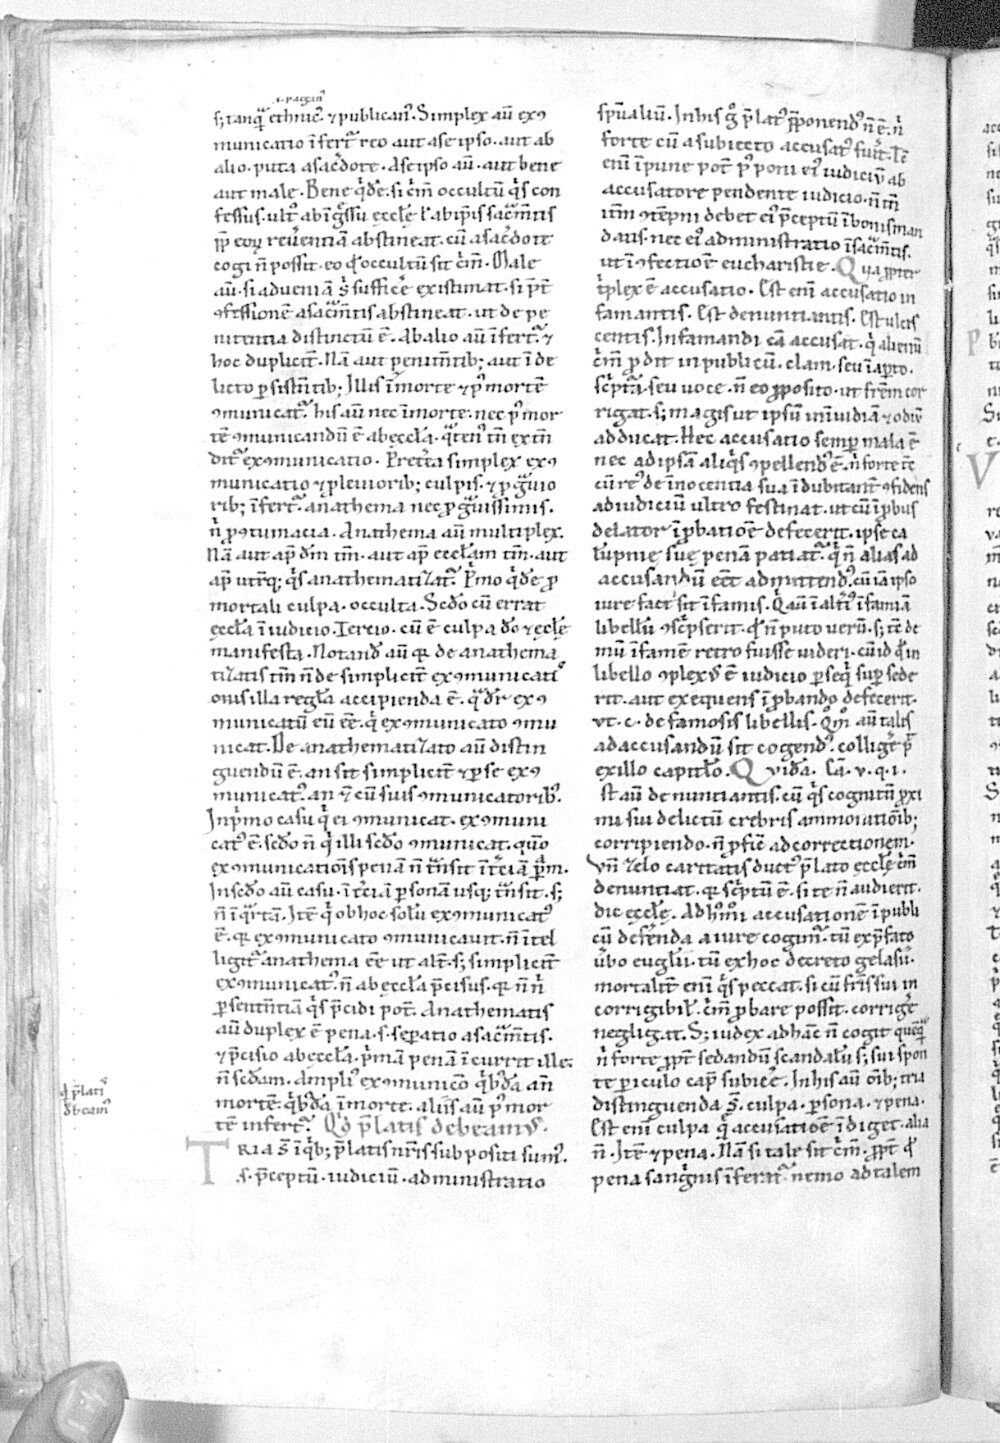 .i. pagan᷒
s; tanqͣ ethnic᷒ ⁊ publican᷒. Simplex aū exꝯ
municatio īfert᷑ reo aut a se ipso. aut ab
alio. puta a sac̄dote. A se ipso aū. aut bene
aut male. Bene qͥdē. si c̄m̄ occultū qͥs con
fessus. ult᷒ ab īgͣssu eccl̄ę l̓ ab ip̄is sac̄m̄tis
ꝓp̄ eoꝝ reu̓entiā abstineat. cū a sac̄dote
cogi n̄ possit. eo qd̓ occultū sit c̄m̄. Male
aū. si adueniā s̄ suffice̓ existimat. si p̄t̓
ꝯfessionē a sac̄m̄tis abstineat. ut de pe
nitentia distinctū ē. Ab alio aū īfert᷑. ⁊
hoc duplicit̓. Nā aut penitn̄tib; aut ī de
licto ꝑsistn̄tib; Illis ī morte ⁊ p᷒ mortē
ꝯmunicat᷑. his aū nec ī morte. nec p᷒ mor
tē ꝯmunicandū ē ab eccl̄a. qͣten᷒ tn̄ ext̄m
dict᷑ exꝯmunicatio. Pret̓ea simplex exꝯ
municatio ⁊ ꝓ leuiorib; culpis. ⁊ ꝓ gͣuio
rib; īfert᷑. anathema nec ꝓ gͣuissimis.
n̄ ꝓ ꝯtumacia. Anathema aū multiplex.
Nā aut ap̄ dm̄ tm̄. aut ap̄ eccl̄am tm̄. aut
ap̄ utrūq; qͥs anathematizat᷑. Pͥmo qͥdē ꝓ
mortali culpa. occulta. Scd̄o cū errat
eccl̄a ī iudicio. Tercio. cū ē culpa d̄o ⁊ eccl̄ę
manifesta. Notand᷒ aū qͥa de anathema
tizatis tm̄ n̄ de simplicit̓ exꝯmunicatͦ
onis illa regl̄a accipienda ē. qͣ dr̄ exꝯ
municatū eū ēē. qͥ exꝯmunicato ꝯmu
nicat. De anathematizato aū distin
guendū ē. an sit simplicit̓ ⁊ ꝑ se exꝯ
municat᷒. an ⁊ cū suis ꝯmunicatorib᷒.
In pͥmo casu qͥ ei ꝯmunicat. exꝯmuni
cat᷒ ē. scd̄o n̄ qͥ illi scd̄o ꝯmunicat. qm̄
exꝯmunicatiōis penā n̄ tͣnsit ī t̓ciā ꝑs̄m.
In scd̄o aū casu. ī t̓ciā ꝑsonā usq; tͣnsit. s;
n̄ ī qͣrtā. Itē qͥ ob hoc solū exꝯmunicat᷒
ē. qͥa exꝯmunicato ꝯmunicauit. n̄ ītel
ligit᷑ anathema ēē ut alt̓. s; simplicit̓
exꝯmunicat᷒. n̄ ab eccl̄a p̄cisus. qͥa n̄ nͥ
ꝑ sentn̄tiā qͥs p̄cidi pot̄. Anathematis
aū duplex ē pena. s. sepatio a sac̄m̄tis.
⁊ p̄cisio ab eccl̄a. pͥmā penā īcurrit ille.
n̄ scd̄am. Ampli᷒ exꝯmunicō qͥb᷒dā an̄
mortē. qͥb᷒dā ī morte. aliis aū p᷒ mor
tē infert᷑. Qd̓ p̄latis debeam᷒.
TRIA s̄ ī qͥb; p̄latis nr̄is subpositi sum᷒.
.s. p̄ceptū. iudiciū. administratio
qͥ p̄latis
debeam᷒
sp̄ualiū. In his gͦ p̄lat᷒ p̄ponend᷒ n̄ ē. nͥ
forte cū a subiecto accusat᷒ fu̓it. Tc̄
eni īpune pot̄ p᷒poni ei᷒ iudiciū ab
accusatore pendente iudicio. n̄ tn̄
itīm ꝯtēpni debet ei᷒ p̄ceptū ī bonis man
datis. nec ei᷒ administratio ī sac̄m̄tis.
ut ī ꝯfectiōe eucharistie. Qͣ ꝓpter
tͥplex ē accusatio. Est eni accusatio in
famantis. Est denuntiantis. Est ulcis
centis. Infamandi cā accusat. qͥ alienū
c̄m̄ ꝓdit in publicū. clam. seu ī ap̄to.
sc̄ptͣ. seu uoce. n̄ eo ꝓposito. ut frēm cor
rigat. s; magis ut ipsū in īuidiā ⁊ odiū
adducat. Hec accusatio semꝑ mala ē
nec ad ipsā aliqͥs ꝯpellend᷒ ē. n̄ forte tc̄
cū re᷒ de īnocentia sua ī dubitanter ꝯfidens
ad iudiciū ultro festinat. ut cū īpbus
delator ī ꝓbatiōe defecerit. ipse ca
lūpnię suę penā patiat᷑. qͥ n̄ alias ad
accusandū eēt admittend᷒. cū iā ipso
iure fact᷒ sit īfamis. Qͥ aū ī alt̓i᷒ īfamiā
libellū ꝯsc̄pserit. qd̓ n̄ puto uerū. s; tc̄ de
mū īfamē retro fuisse uideri. cū id qd̓ in
libello ꝯplex᷒ ē iudicio ꝑseqͥ sup sede
rit. aut exequens ī ꝓbando defecerit.
vt. c. de famosis libellis. Qm̄ aū talis
ad accusandū sit cogend᷒. colligit᷑
ex illo capitl̄o. Quidā. Cā. v. q. i.
st aū denuntiantis. cū qͥs cognitū ꝓxi
mi sui delictū crebris ammonitiōib;
corripiendo. n̄ ꝓficit ad correctionem.
vn̄ zelo caritatis duct᷒ p̄lato eccl̄ę c̄m̄
denuntiat. qͥa sc̄ptū ē. si te n̄ audierit.
dic eccl̄ę. Ad h᷒m̄oi accusationē ī publi
cū defenda a iure cogim᷒. tū ex p̄fato
u̓bo eugl̄ii. tū ex hoc decreto gelasii.
mortalit̓ eni qͥs peccat. si cū fr̄is sui in
corrigibil̓. c̄m̄ ꝓbare possit. corrige̓
negligat. S; iudex ad hāc n̄ cogit quēqͣ
n̄ forte ꝓpt̓ sedandū scandalū s; sui spon
te ꝑiculo cap̄ subice̓. In his aū oīb; tria
distinguenda s̄. culpa. ꝑsona. ⁊ pena.
Est eni culpa qͥ accusatiōe īdiget. alia
n̄. Itē ⁊ pena. Nā si tale sit c̄m̄. ꝓpt̓ qd̓
pena sangͥnis īferat᷑. nemo ad talem